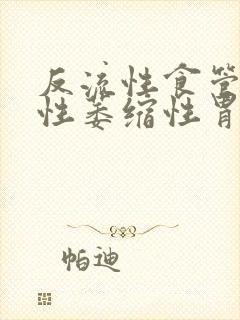 反流性食管
性萎缩性胃
帕迪